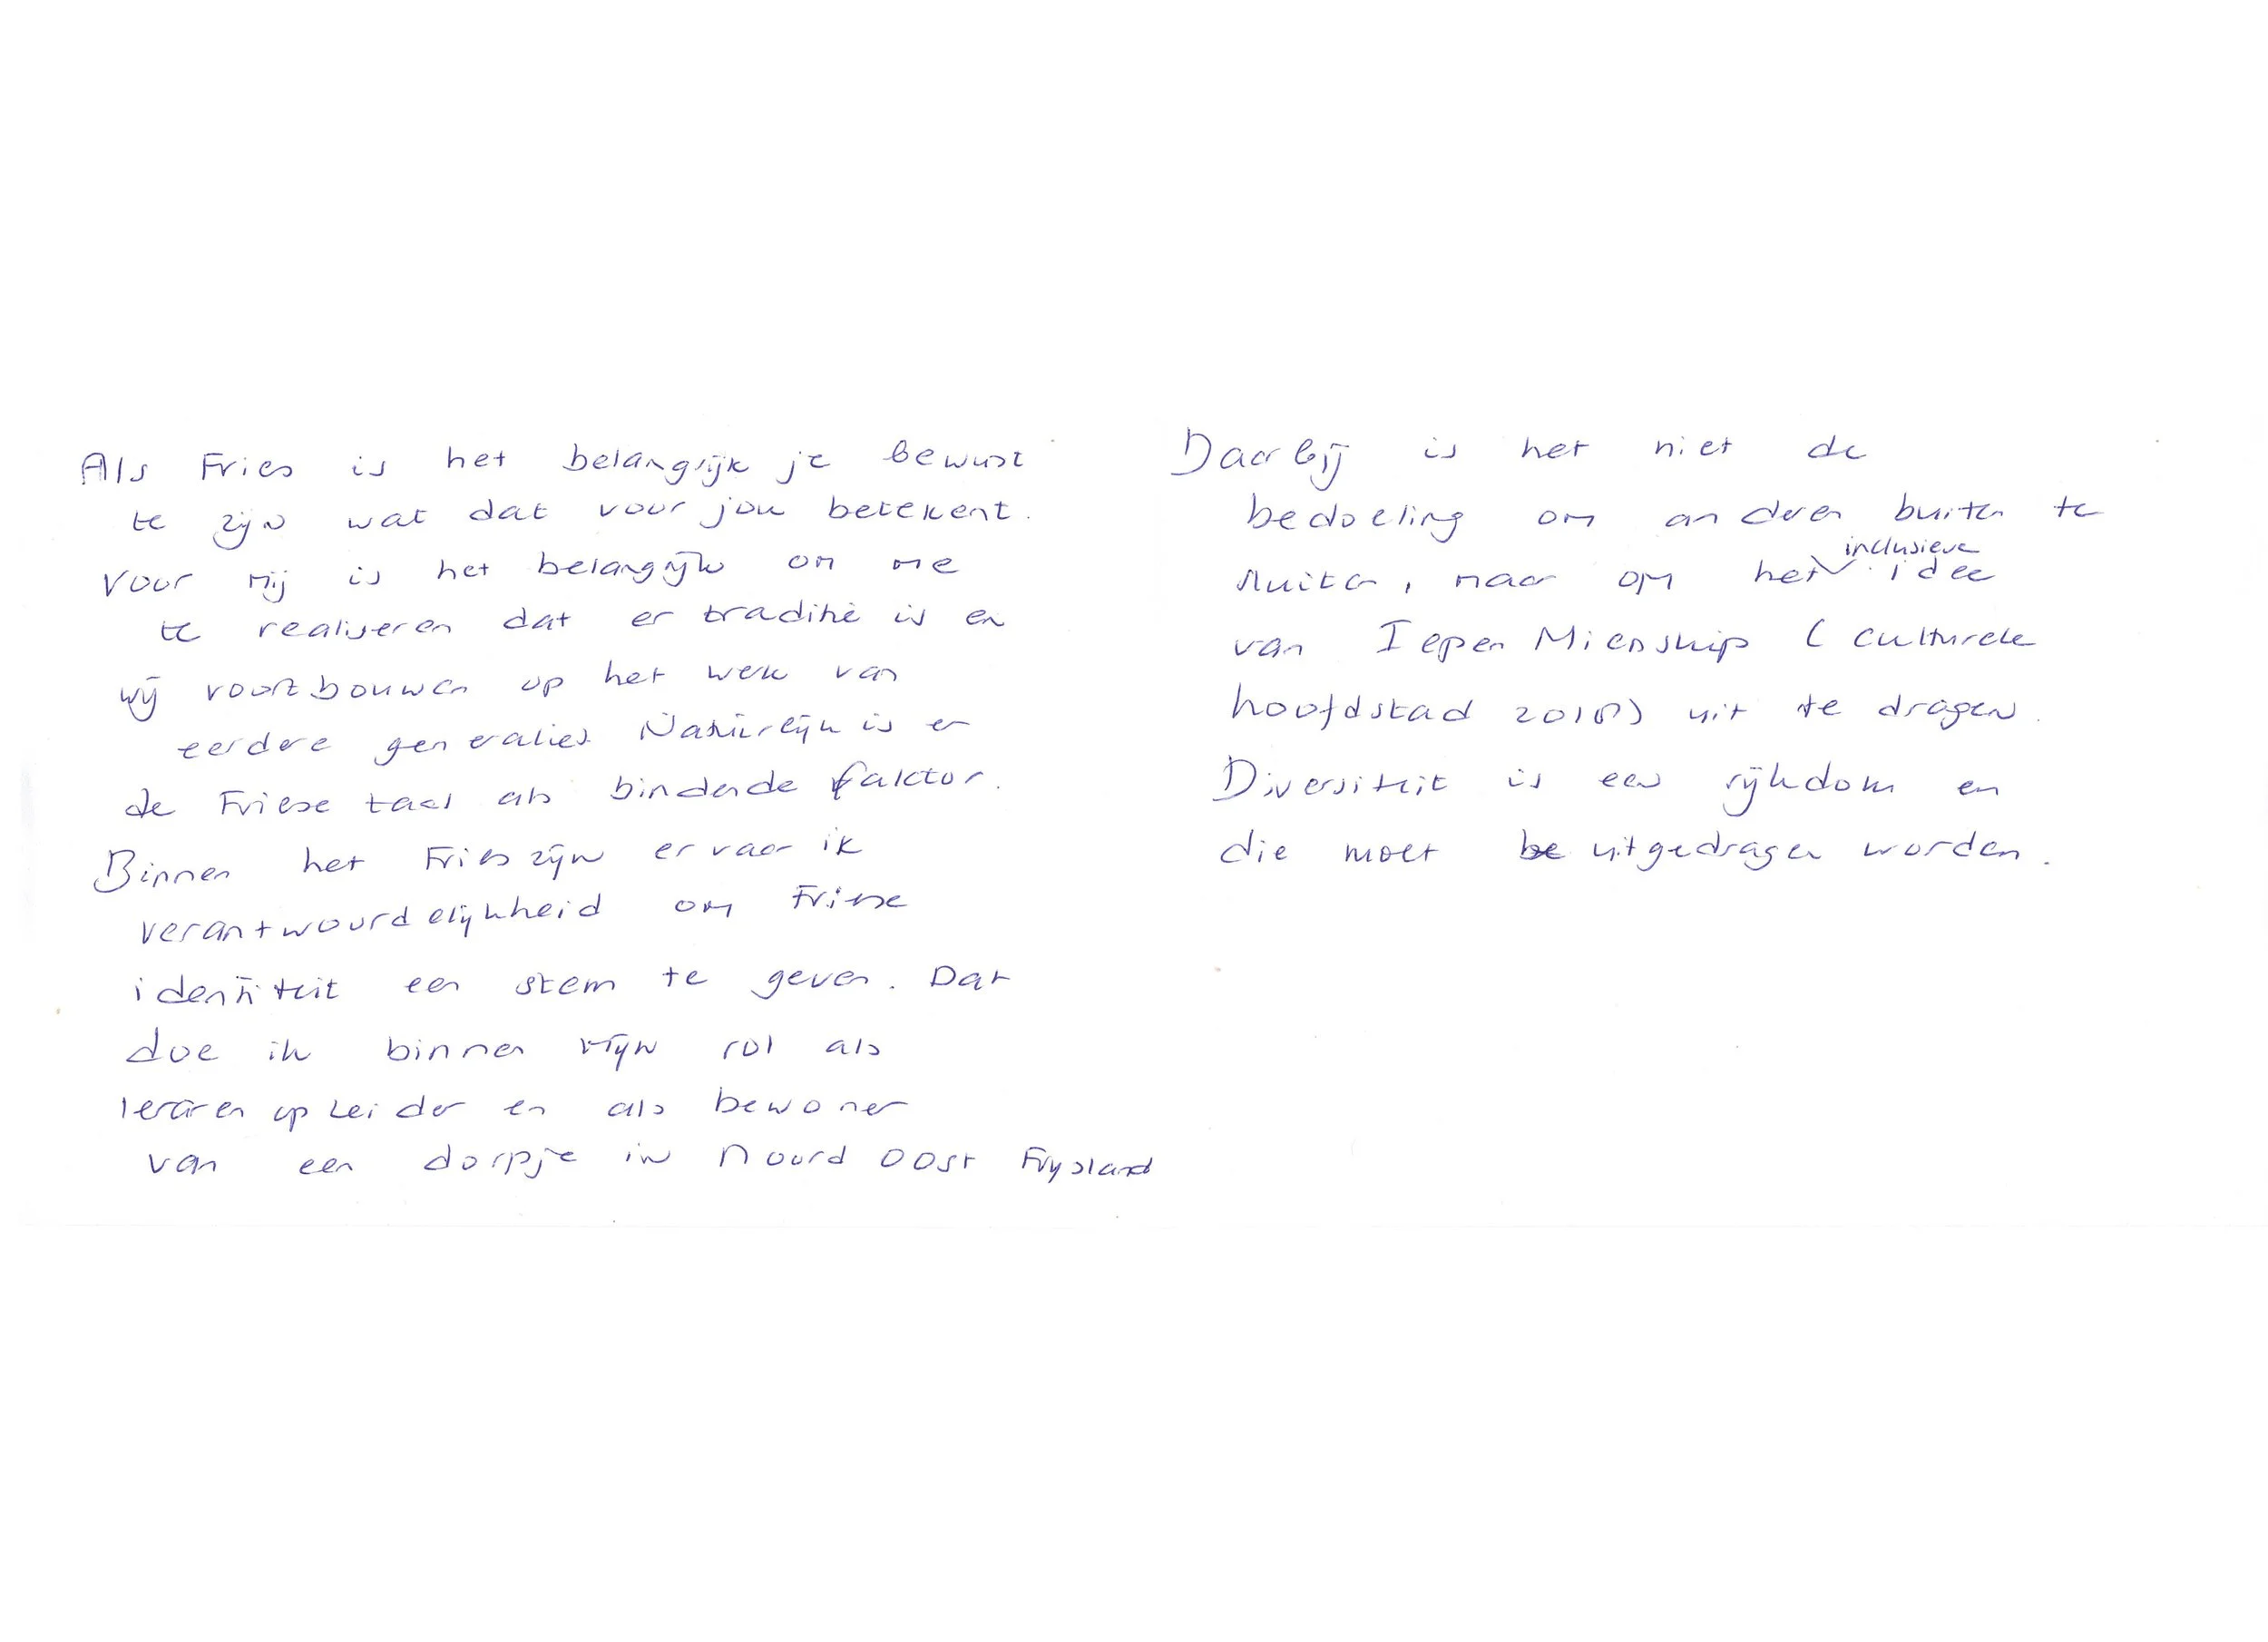 Als Fries is het belangrijk je bewust
te zijn wat dat voor jou betekent.
Voor mij is het belangrijk om me
te realiseren dat er traditie is en
wij voortbouwen op het werk van
eerdere generaties. Natuurlijk is er
de Friese taal als bindende faktor.
Binnen het Fries zijn ervaar ik
verantwoordelijkheid om Friese
identiteit een stem te geven. Dat
doe ik binnen mijn rol als
leraren opleider en als bewoner
van een dorpje in Noord Oost Frysland
Daarbij is het niet de
bedoeling om anderen buiten te
sluiten, maar om het inclusieve idee
van Iepen Mienskip (culturele
hoofdstad 2018) uit te dragen.
Diversiteit is een rijkdom en
die moet uitgedragen worden.